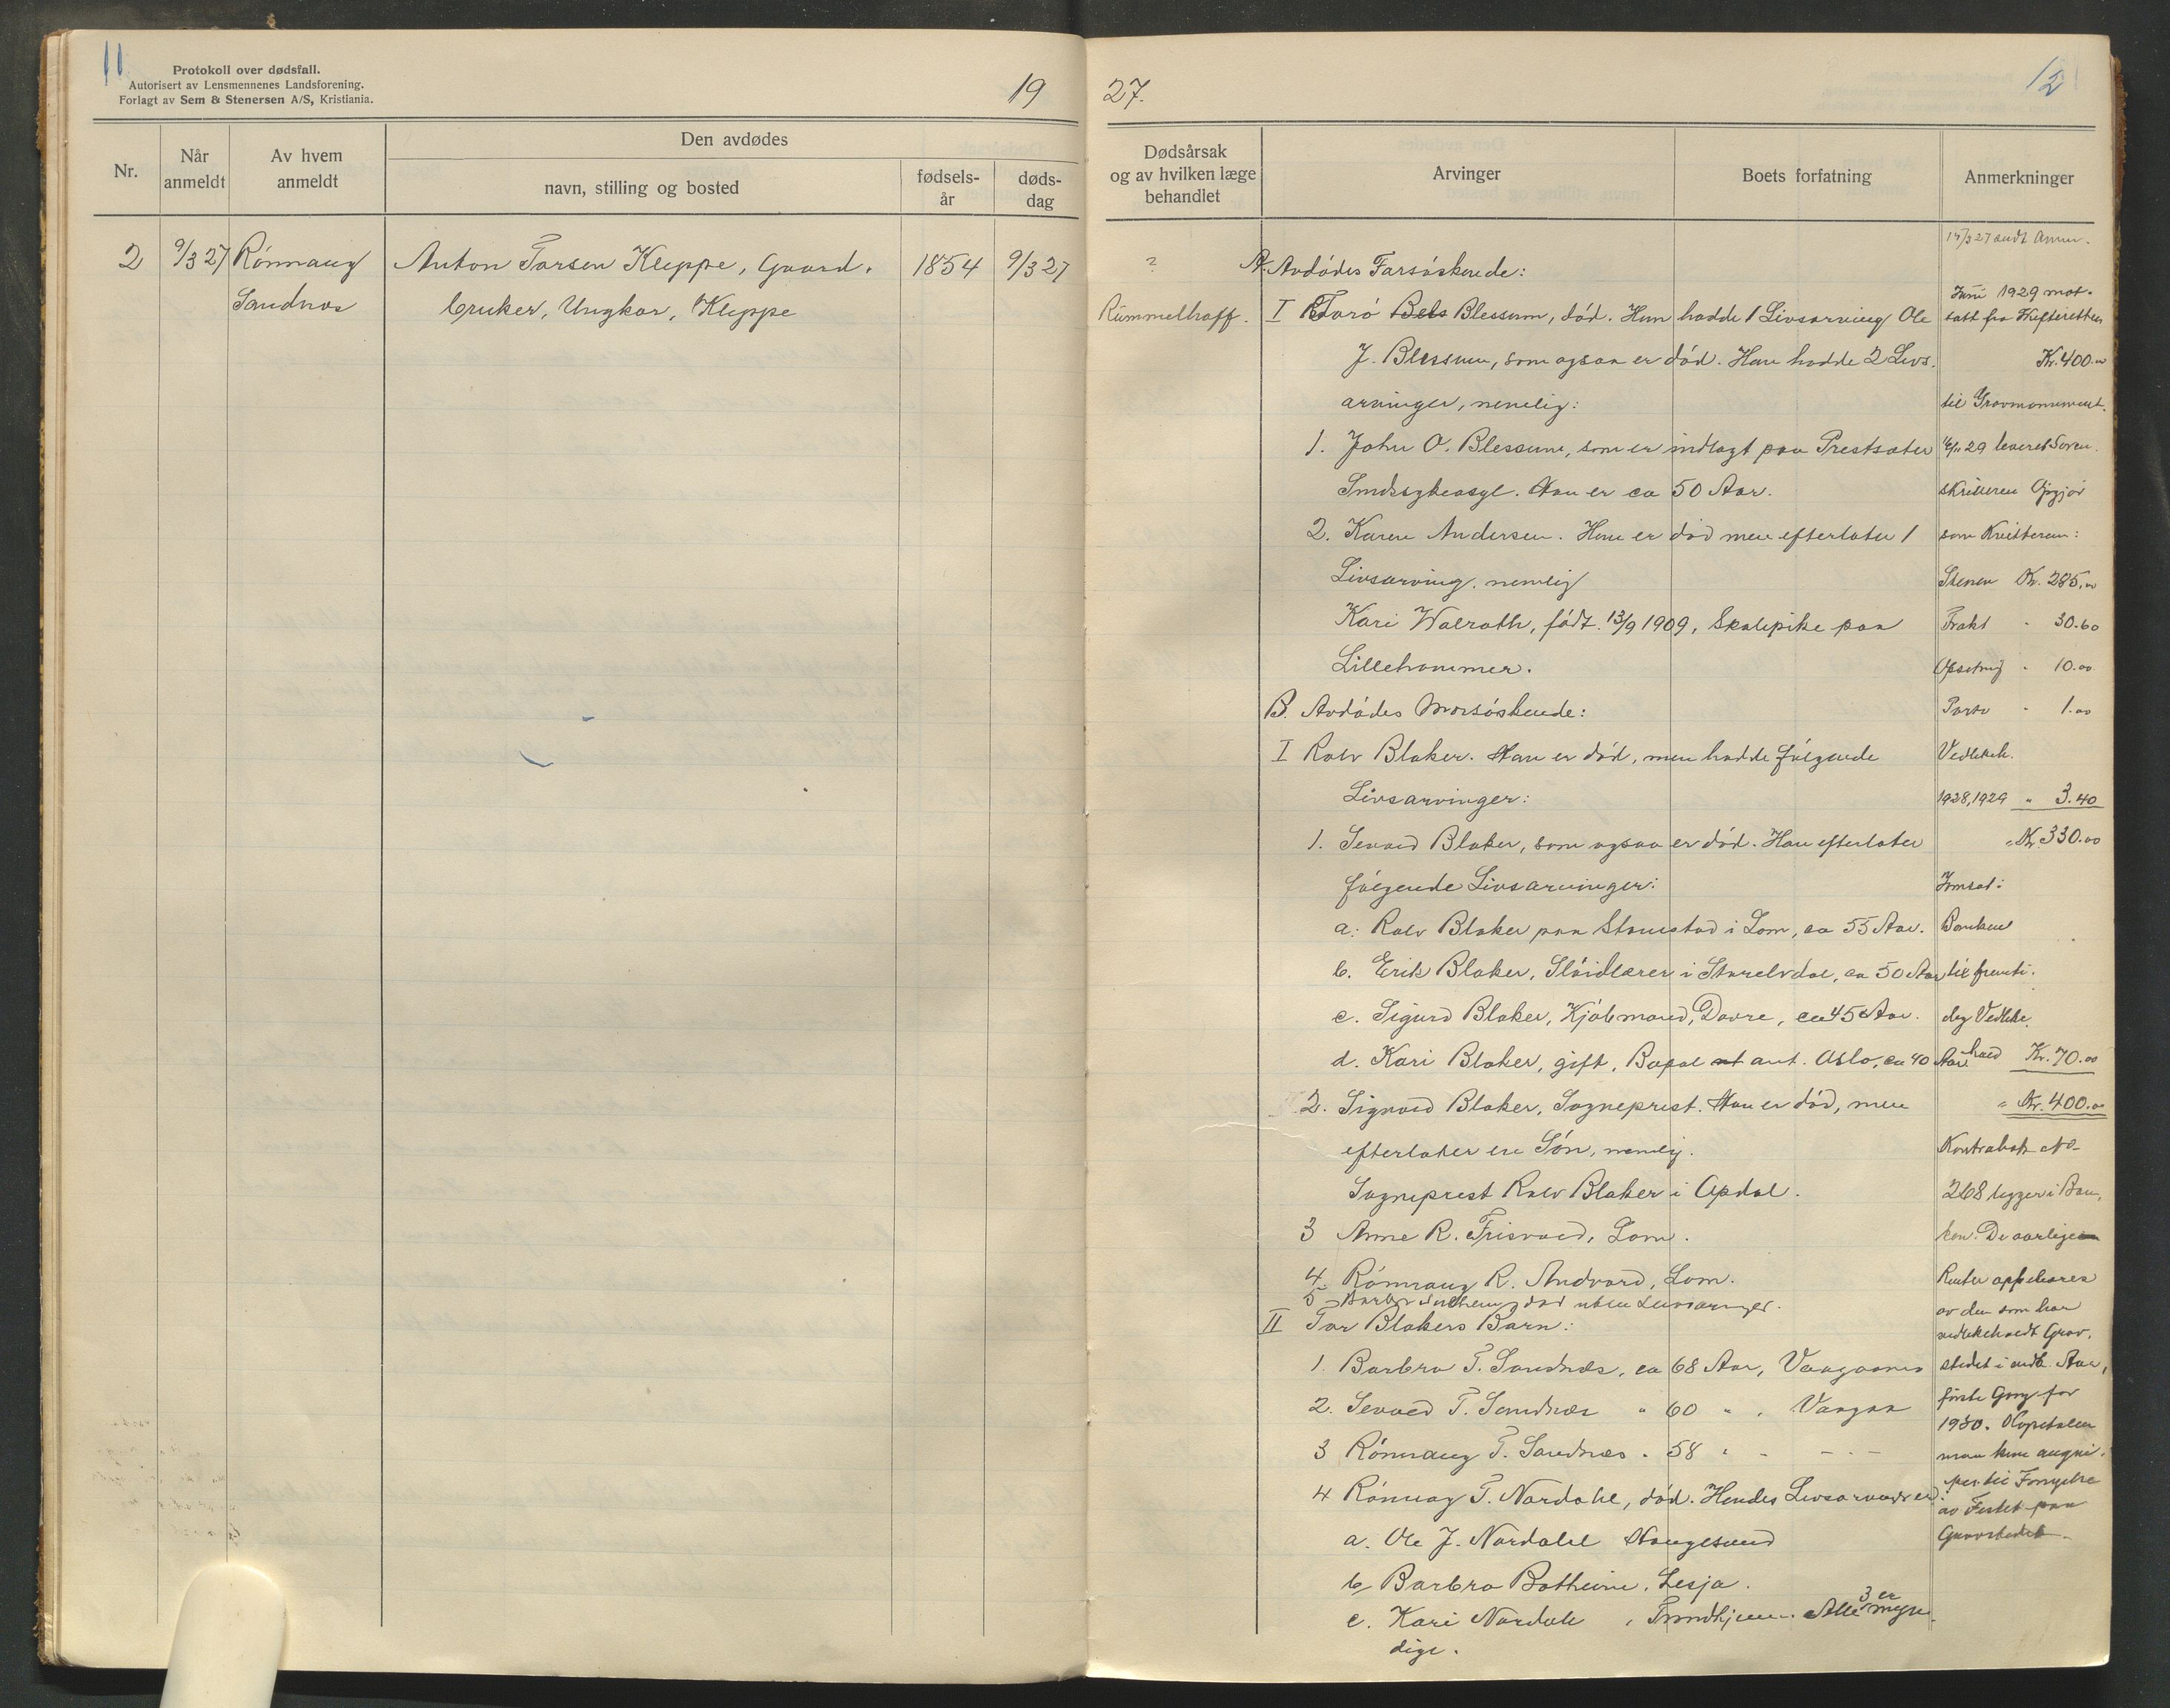 11
Protokoll over dødsfall.
Autorisert av Lensmennenes Landsforening.
Forlagt av Sem & Stenersen A/S, Kristiania.
19
Nr.
Når anmeldt
Av hvem anmeldt
Den avdødes
navn, stilling og bosted
fødsels-
år
døds-
dag
2 9/3 27 Rønnaug Anton Torsen Kleppe, Gaard- 1854 9/3 27
Sandnæs bruker, Ungkar, Kleppe
27.
12
Dødsårsak
og av hvilken læge
behandlet
Arvinger
Boets forfatning
Anmerkninger
?
Rummelhoff.
A. Avdødes Farsøskende:
I Torø Blessum, død. Hun hadde 1 Livsarving Ole
J. Blessum, som ogsaa er død. Han hadde 2 Livs-
arvinger, nemlig:
1. John O. Blessum, som er indlagt paa Prestsæter
Sindssykeasyl. Han er ca 50 Aar.
2. Karen Andersen. Hun er død men efterlater 1
Livsarving, nemlig
Kari Walrath, født 13/9 1909, Skolepike paa
Lillehammer.
B. Avdødes Morsøskende:
I Rolv Blaker. Han er død, men hadde følgende
Livsarvinger:
1. Sevald Blaker, som ogsaa er død. Han efterlater
følgende Livsarvinger:
a. Rolv Blaker paa Stamstad i Lom, ca 55 Aar.
b. Erik Blaker, Sløidlærer i Storelvdal, ca 50 Aar
c. Sigurd Blaker, Kjøbmand, Dovre, ca 45 Aar.
d. Kari Blaker, gift, Bopæl ant. Oslo, ca 40 Aar
2. Sigvald Blaker, Sogneprest. Han er død, men
efterlater en Søn, nemlig.
Sogneprest Rolv Blaker i Opdal.
3 Anne R. Frisvold, Lom.
4. Rønnaug R. Andvord, Lom.
5 død uten Livsarvinger.
II Tor Blakers Barn:
1. Barbro T. Sandnæs, ca 68 Aar, Vaagaarust
2. Sevald T. Sandnæs " 60 " , Vaagaa
3 Rønnaug T. Sandnæs " 58 " - - - -
4 Rønnaug T. Nordahl, død. Hendes Livsarvinger
a. Ole J. Nordahl Haugesund
b, Barbro Botheim, Lesja.
c. Kari Nordahl , Trondhjem. Alle 3 er myn-
dige.
15/3 27 sendt Anm.
Juni 1929 mot-
tatt fra Skifteretten
Kr. 400.00
til Gravmonument.
29 leveret Soren-
skriveren Opgjør
som Kvitteren:
Stenen Kr. 285,00
Frakt " 30.60
Opsetning " 10.00
Porto " 1.00
Vedlikeh.
1928, 1929 " 3.40
= Kr. 330.00
Indsat i
Banken
til fremti-
dig Vedlike-
hold Kr. 70.00
= Kr. 400.00
Kontrabok No
268 ligger i Ban-
ken. De aarlige
Renter oppebæres
av den som har
vedlikeholdt Grav-
stedet i vedk. Aar,
første Gang for
1930. Kapitalen
maa kun angri-
pes til Fornyelse
av Festet paa
Gravstedet.